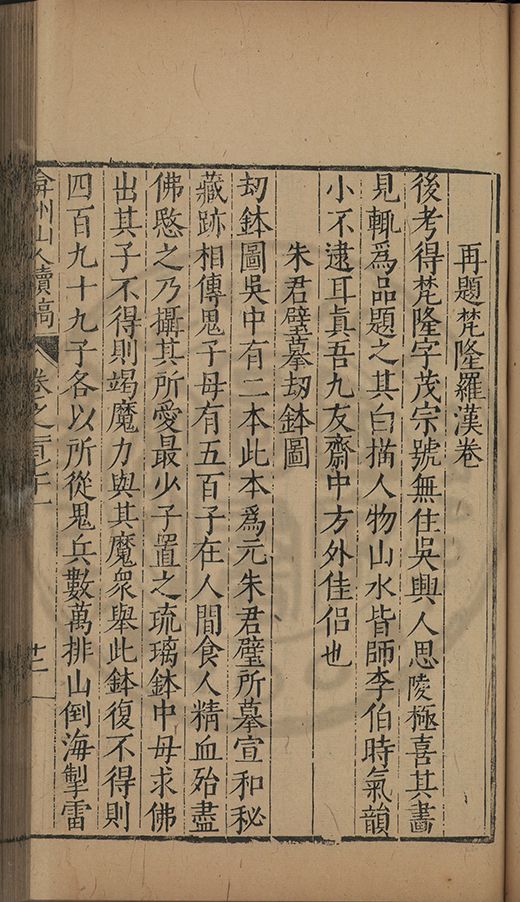 再題梵隆羅漢卷
後考得梵隆字茂宗號無住吳興人思陵極喜其畵
見輒爲品題之其白描人物山水皆師李伯時氣韻
小不逮耳眞吾九友齋中方外佳侣也
朱君璧摹刧鉢圖
刧鉢圖吳中有二本此本爲元朱君璧所摹宣和秘
藏跡相傳鬼子母有五百子在人間食人精血殆盡
佛愍之乃攝其所愛最少子置之琉璃鉢中母求佛
出其子不得則竭魔力與其魔衆舉此鉢復不得則
四百九十九子各以所從鬼兵數萬排山倒海掣雷
弇州山人續稿 卷之